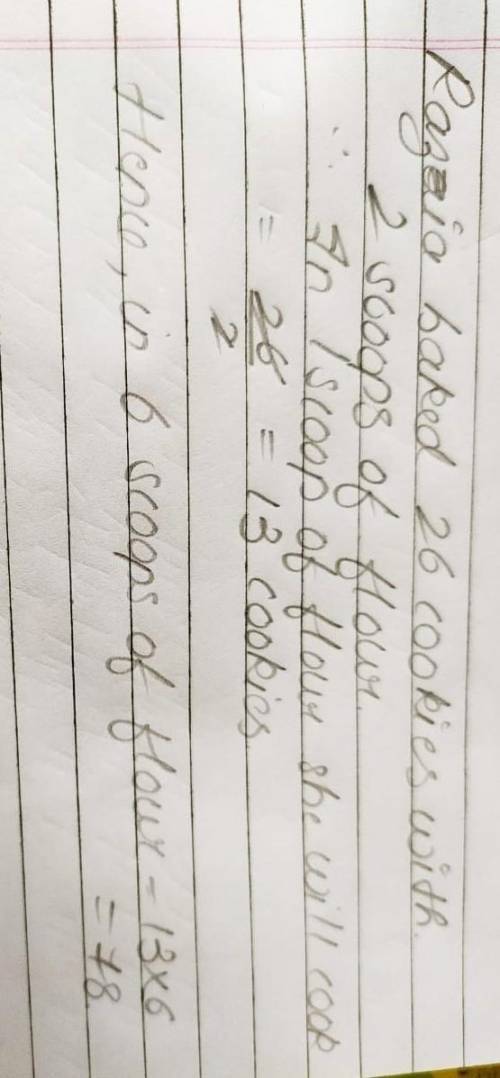 Razia baked 26 cookies with
2 scoops of flour.
∴ In 1 scoop of flour she will cook
= 26/2 = 13 cookies.
Hence, in 6 scoops of flour = 13×6
= 78